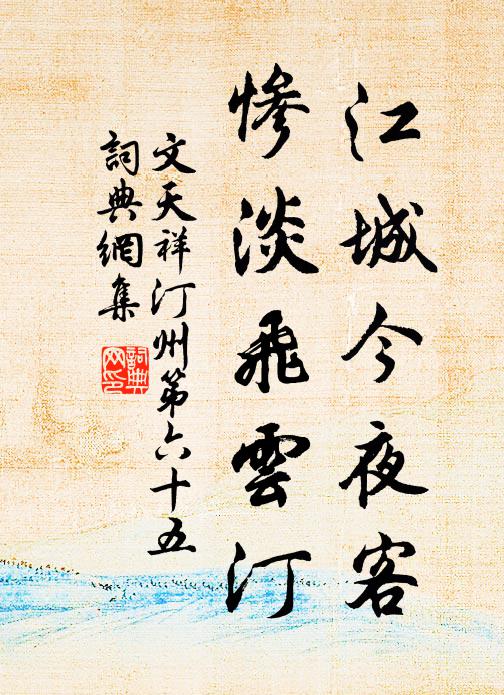 江城今夜客
慘淡飛雲汀
文天祥汀州第六十五
詞典網集
詞典網印